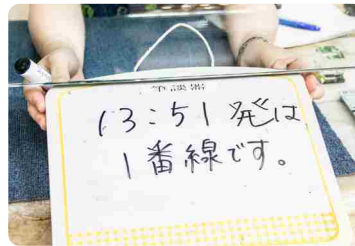 筆談器
13:51発は
1番線です。